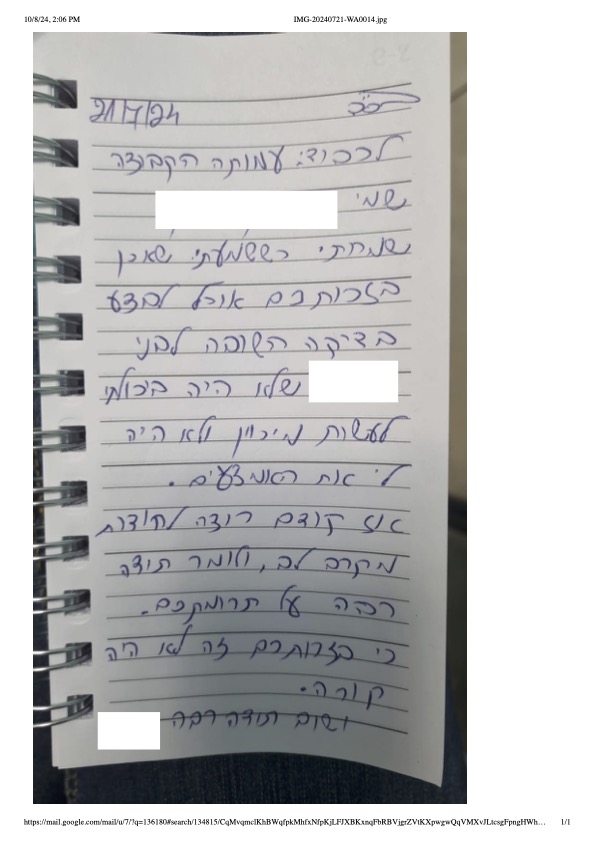 10/8/24, 2:06 PM IMG-20240721-WA0014.jpg
21/7/24
לכבוד: עמותה הקבוצה
שמי
שמחתי כששמעתי שאכן
בזכותכם אוכל לבצע
בדיקה חשובה לבני
שלא היה ביכולתי
לעשות מיכוון ולא היה
לי את האמצעים.
אז קודם רוצה להודות
מקרב לב, ולומר תודה
רבה על תרומתכם.
כי בזכותכם זה לא היה
קורה.
ושוב תודה רבה
https://mail.google.com/mail/u/7/?q=136180#search/134815/CqMvqmclKhBWqfpkMhfxNfpKjLFJXBKxnqFbRBVjgrZVtKXpwgwQqVMXvJLtcsgFpngHWh… 1/1